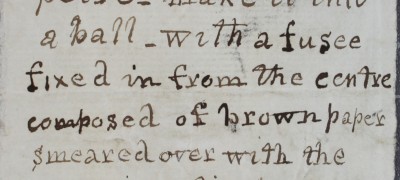 make it into
a ball - with a fusee
fixed in from the centre
composed of brown paper
smeared over with the